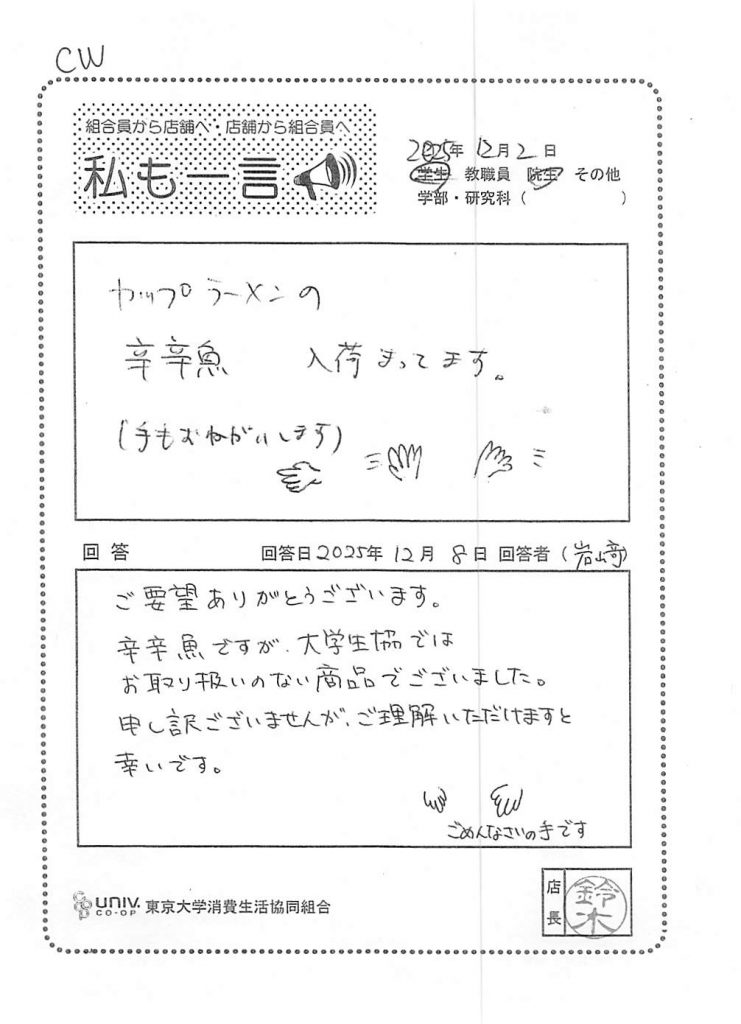 CW
組合員から店舗へ・店舗から組合員へ
私も一言
2025年 12月 2日
学生 教職員 院生 その他
学部・研究科（　　　　　　）
カップラーメンの
辛辛魚　入荷まってます。
(手もおねがいします)
回答　回答日2025年 12月 8日 回答者（岩崎）
ご要望ありがとうございます。
辛辛魚ですが、大学生協では
お取り扱いのない商品でございました。
申し訳ございませんが、ご理解いただけますと
幸いです。
ごめんなさいの手です
UNIV. CO-OP 東京大学消費生活協同組合
店長 鈴木